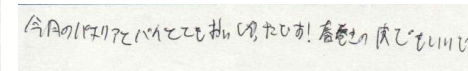 今月のパエリアとパイとてもおいしかったです!春巻きの皮でもいいで